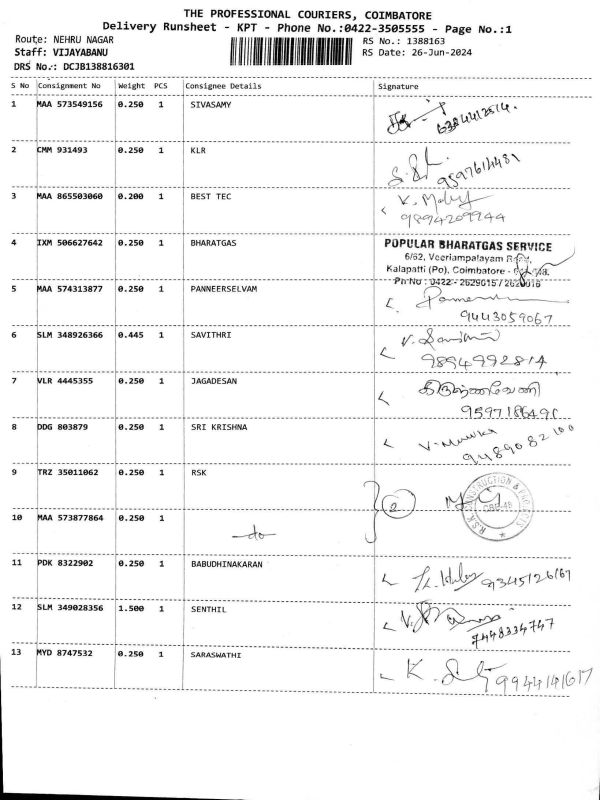 THE PROFESSIONAL COURIERS, COIMBATORE
Delivery Runsheet - KPT - Phone No.:0422-3505555 - Page No.:1
Route: NEHRU NAGAR RS No.: 1388163
Staff: VIJAYABANU RS Date: 26-Jun-2024
DRS No.: DCJB138816301
S No Consignment No Weight PCS Consignee Details Signature
1 MAA 573549156 0.250 1 SIVASAMY
6384412514.
2 CMM 931493 0.250 1 KLR
9597614481
3 MAA 865503060 0.200 1 BEST TEC
9894209244
4 IXM 506627642 0.250 1 BHARATGAS
POPULAR BHARATGAS SERVICE
6/62, Veeriampalayam
Kalapatti (Po), Coimbatore -
Ph No : 0422 - 2629015 / 2629016
5 MAA 574313877 0.250 1 PANNEERSELVAM
9443059067
6 SLM 348926366 0.445 1 SAVITHRI
9894992814
7 VLR 4445355 0.250 1 JAGADESAN கிருஷ்ணவேணி
9597186491
8 DDG 803879 0.250 1 SRI KRISHNA
9489082100
9 TRZ 35011062 0.250 1 RSK
2
R.S.K. CONSTRUCTION & PROJECTS
CBE-48
10 MAA 573877864 0.250 1
-do-
11 PDK 8322902 0.250 1 BABUDHINAKARAN
9345126167
12 SLM 349028356 1.500 1 SENTHIL
7448334747
13 MYD 8747532 0.250 1 SARASWATHI
9944141617